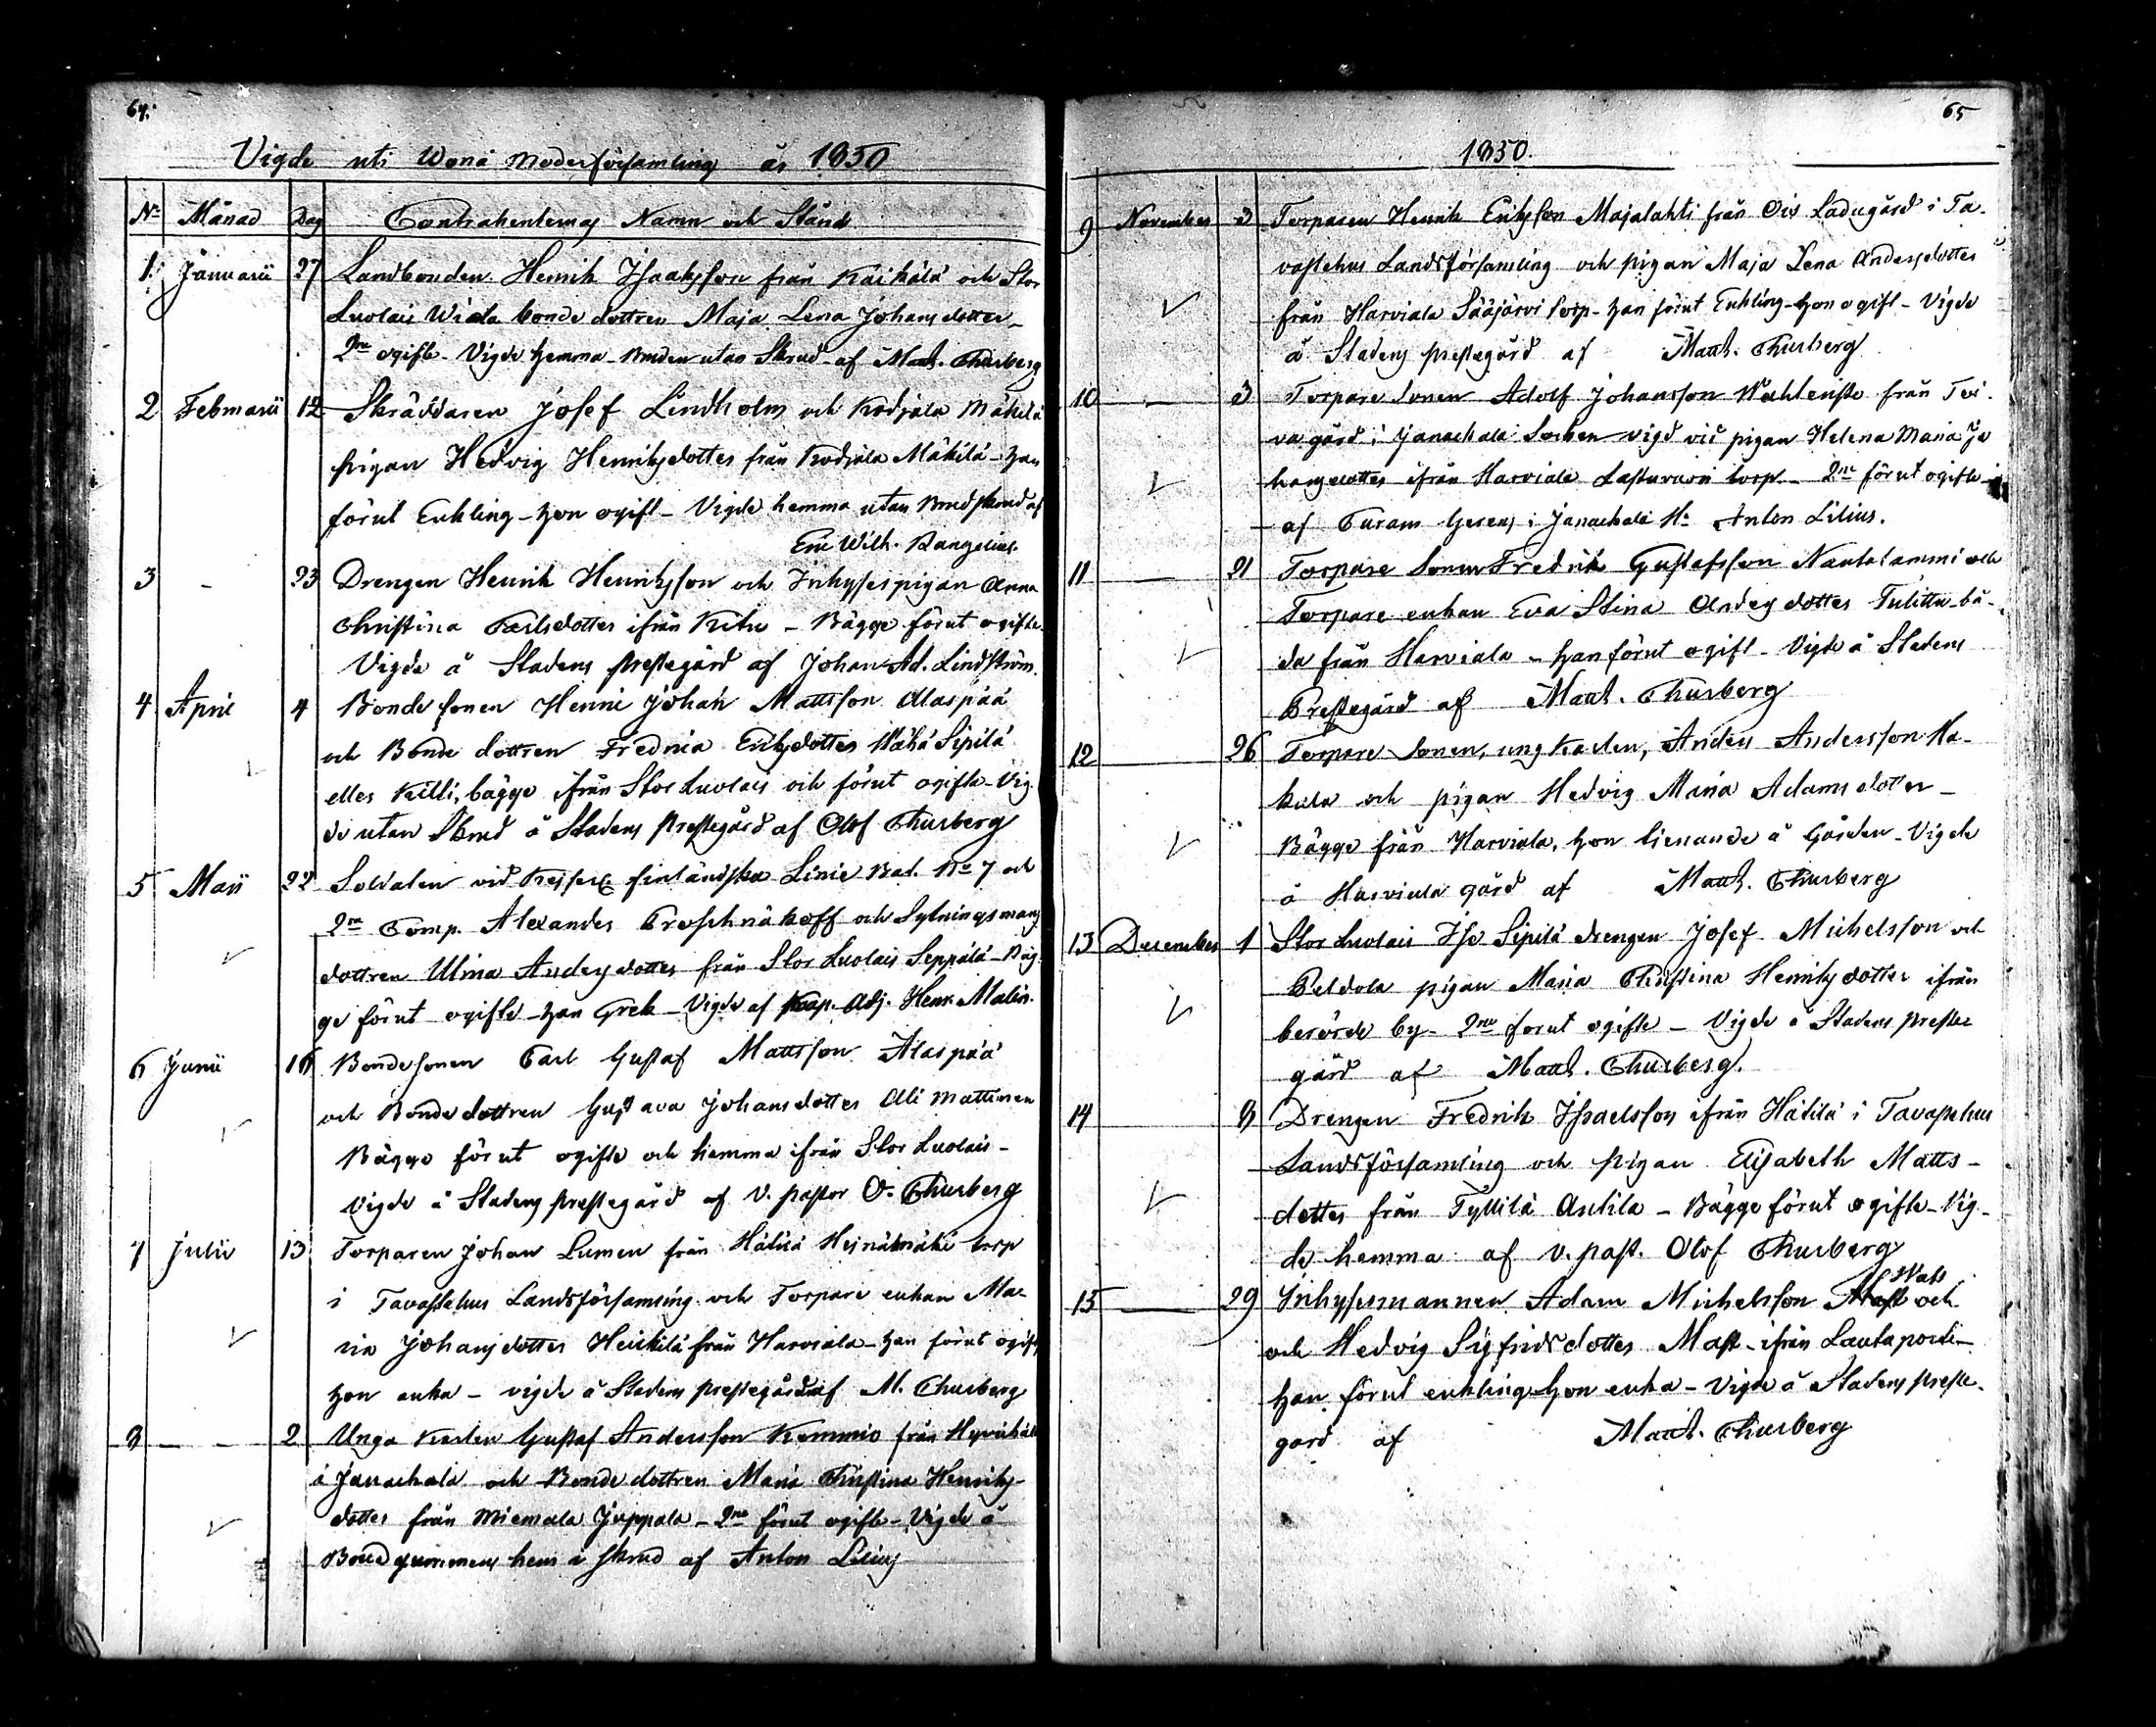 64.
Vigde uti Wonå Moderförsamling år 1850
No Månad Dag Contrahenternas Namn och Stånd
1. Januarii 27 Landbonden Henrik Isaaksson från Käikälä och Stor
Luolais Wiala bonde dottren Maja Lena Johansdotter –
2ne ogifte – Vigde hemma – Bruden utan Skrud – af Matth. Thurberg
2 Februarii 12 Skräddaren Josef Lindholm och Kodjala Mäkilä
pigan Hedvig Henriksdotter från Kodjala Mäkilä – han
förut Enkling – hon ogift – Vigde hemma utan Brudskrud af
Eric Wilh. Rangelius.
3 - 23 Drengen Henrik Henriksson och Inhysespigan Anna
Christina Carlsdotter ifrån Ketu – Bägge förut ogifte.
Vigde å Stadens Prestegård af Johan Ad. Lindström.
4 April 4 Bondesonen Henric Johan Mattsson Alaspää
och Bonde dottren Fredrica Eriksdotter Wähä Sipilä
eller Killi, bägge ifrån Stor Luolais och förut ogifte – Vig-
de utan Skrud å Stadens Prestegård af Olof Thurberg
5 Maji 22 Soldaten vid Kejserl. finländska Linie Bat. No 7 och
2ra Comp. Alexander Proschnäkoff och Sytningsmans
dottren Ulrica Andersdotter från Stor Luolais Seppälä – Bäg-
ge förut ogifte – han Grek – Vigde af Kap. Adj. Henr. Malin.
6 Junii 16 Bondesonen Carl Gustaf Mattsson Alaspää
och Bondedottren Gustava Johansdotter Ali Mattinen
Bägge förut ogifte och hemma ifrån Stor Luolais –
Vigde å Stadens prestegård af V. pastor O. Thurberg
7 Julii 13 Torparen Johan Lumen från Hätilä Heinämäki torp
i Tavastehus Landsförsamling och Torpare enkan Ma-
ria Johansdotter Heikkilä från Harviala – han förut ogift
hon enka – vigde å Stadens prestegård af M. Thurberg
8 — - 2 Unga Karlen Gustaf Andersson Kemmio från Hyvikälä
i Janackala och Bonde dottren Maria Christina Henriks-
dotter från Miemala Juppala – 2ne förut ogifte – Vigde å
Brudgummens hem i skrud af Anton Lilius
65
1850.
9 November 3 Torparen Henrik Eriksson Majalahti från Ois Ladugård i Ta-
vastehus Landsförsamling och pigan Maja Lena Andersdotter
från Harviala Sääjärvi torp – han förut Enkling – hon ogift – Vigde
å Stadens prestegård af Matth. Thurberg
10 — 3 Torpare Sonen Adolf Johansson Wahleniste från
va gård i Janackala Socken vigd vid pigan Helena Maria Jo
hansdotter ifrån Harviala torp – 2ne förut ogifte –
af i Janackala Hr Anton Lilius.
11 — 21 Torpare Sonen Fredrik Gustafsson Nautalammi och
Torpare enkan Eva Stina Andersdotter Tulittu bå-
da från Harviala – han förut ogift – Vigde å Stadens
Prestegård af Matth. Thurberg
12 — 26 Torpare Sonen, ung Karlen, Anders Andersson Ha-
kala och pigan Hedvig Maria Adamsdotter –
Bägge från Harviala, hon tienande å Gården – Vigde
å Harviala gård af Matth. Thurberg
13 December 1 Stor Luolais Iso Sipilä drengen Josef Michelsson och
Peldola pigan Maria Christina Henriksdotter ifrån
berörde by – 2ne förut ogifte – Vigde å Stadens preste
gård af Matth. Thurberg.
14 — 8 Drengen Fredrik Israelsson ifrån Hätilä i Tavastehus
Landsförsamling och pigan Elisabeth Matts-
dotter från Tyllilä Antila – Bägge förut ogifte – Vig-
de hemma af v. past. Olof Thurberg
15 — 29 Inhysesmannen Adam Michelsson och
och Hedvig Sigfridsdotter Mast – ifrån Lautaporti –
han förut enkling – hon enka – Vigde å Stadens preste-
gård af Matth. Thurberg